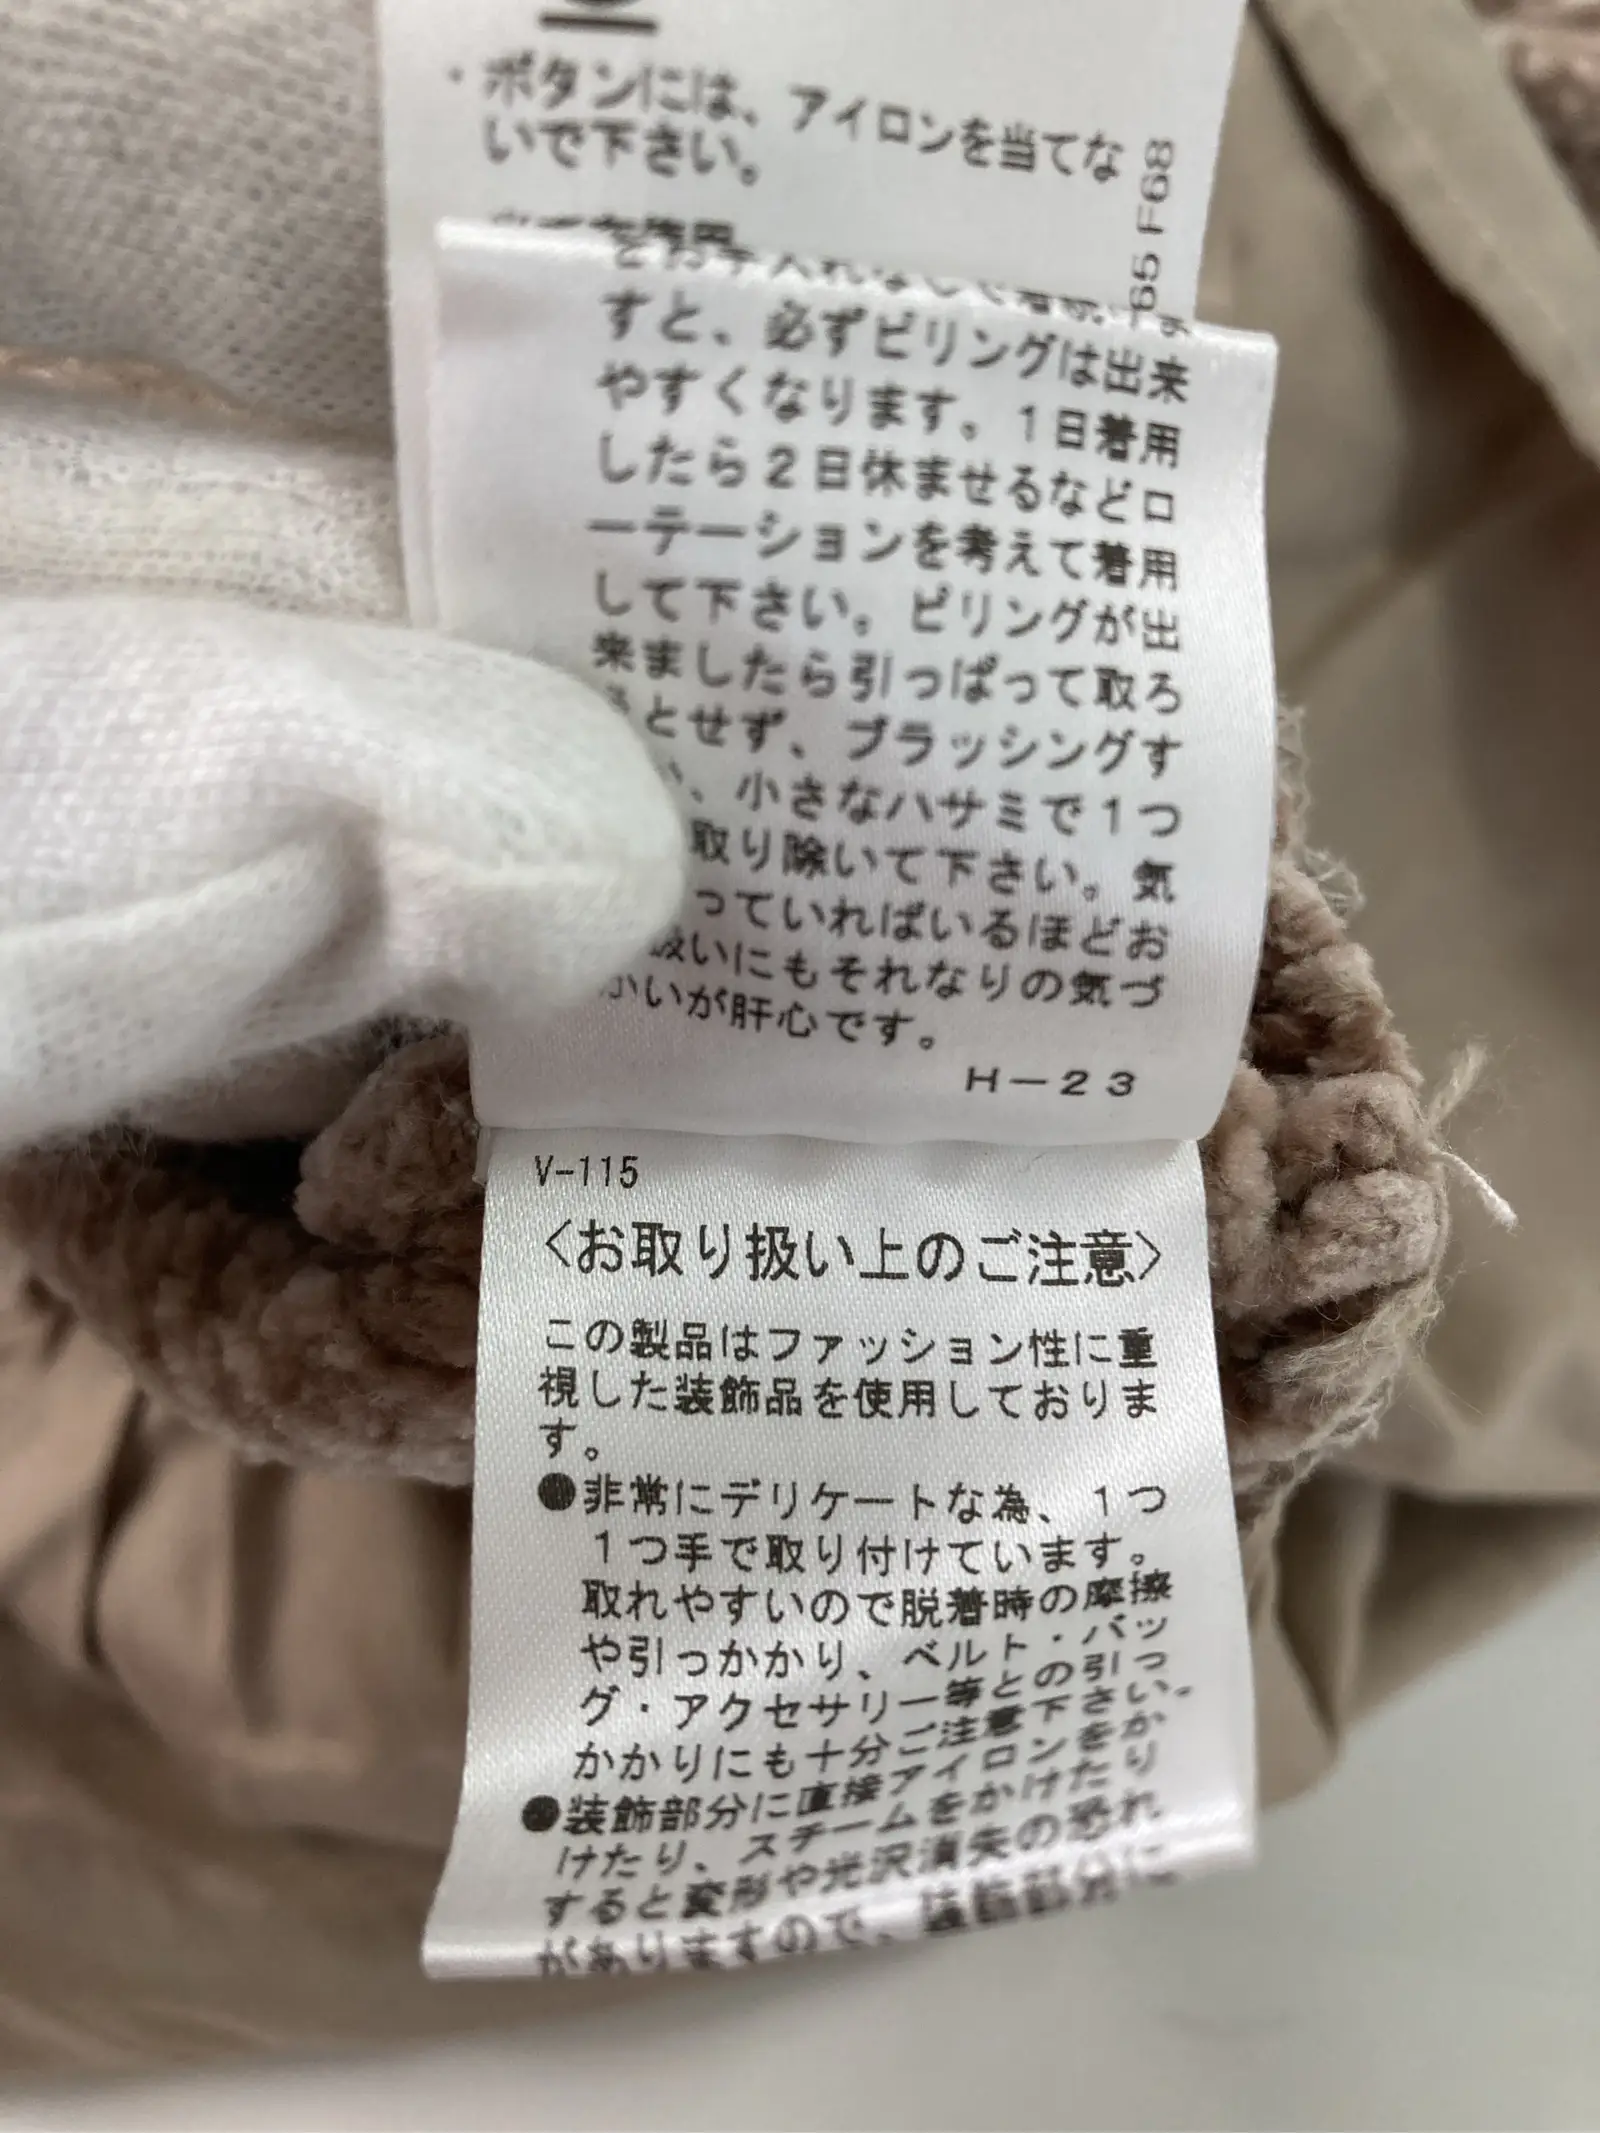 ・ボタンには、アイロンを当てな
いで下さい。
65 F68
すと、必ずピリングは出来
やすくなります。1日着用
したら2日休ませるなどロ
ーテーションを考えて着用
して下さい。ピリングが出
来ましたら引っぱって取ろ
とせず、ブラッシングす
、小さなハサミで1つ
取り除いて下さい。気
っていればいるほどお
扱いにもそれなりの気づ
かいが肝心です。
H-23
V-115
〈お取り扱い上のご注意〉
この製品はファッション性に重
視した装飾品を使用しておりま
す。
●非常にデリケートな為、1つ
1つ手で取り付けています。
取れやすいので脱着時の摩擦
や引っかかり、ベルト・バッ
グ・アクセサリー等との引っ
かかりにも十分ご注意下さい。
●装飾部分に直接アイロンをか
けたり、スチームをかけたり
すると変形や光沢消失の恐れ
がありますので、装飾部分に